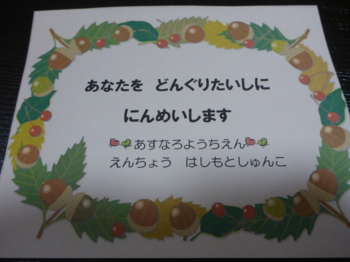 あなたを どんぐりたいしに
にんめいします
あすなろようちえん
えんちょう はしもとしゅんこ